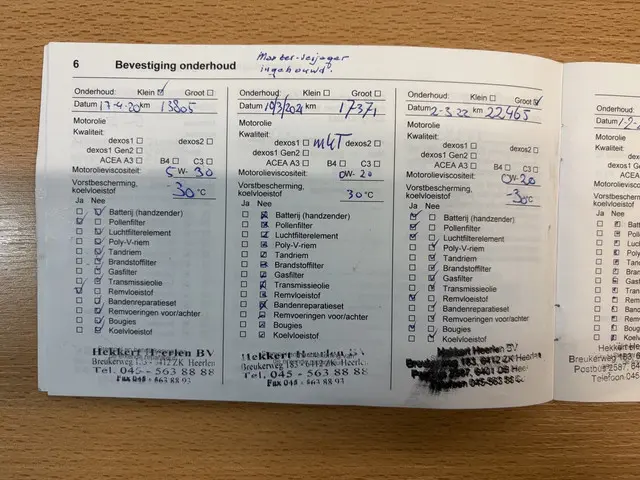 6 Bevestiging onderhoud
ingebouwd.
Onderhoud: Klein Groot
Datum 17-4-20 km 13805
Motorolie
Kwaliteit:
dexos1 dexos2
dexos1 Gen2
ACEA A3 B4 C3
Motorolieviscositeit: 5 W- 30
Vorstbescherming,
koelvloeistof -30 °C
Ja Nee
Batterij (handzender)
Pollenfilter
Luchtfilterelement
Poly-V-riem
Tandriem
Brandstoffilter
Gasfilter
Transmissieolie
Remvloeistof
Bandenreparatieset
Remvoeringen voor/achter
Bougies
Koelvloeistof
Hekkert Heerlen BV
Breukerweg 183 - 6412 ZK Heerlen
Tel. 045 - 563 88 88
Fax 045 - 563 88 93
Onderhoud: Klein Groot
Datum 10/3/2021 km 17371
Motorolie
Kwaliteit:
dexos1 dexos2
dexos1 Gen2
ACEA A3 B4 C3
Motorolieviscositeit: 0W- 20
Vorstbescherming,
koelvloeistof 30 °C
Ja Nee
Batterij (handzender)
Pollenfilter
Luchtfilterelement
Poly-V-riem
Tandriem
Brandstoffilter
Gasfilter
Transmissieolie
Remvloeistof
Bandenreparatieset
Remvoeringen voor/achter
Bougies
Koelvloeistof
Hekkert Heerlen BV
Breukerweg 183 - 6412 ZK Heerlen
Tel. 045 - 563 88 88
Fax 045 - 563 88 93
Onderhoud: Klein Groot
Datum 2-3-22 km 22.465
Motorolie
Kwaliteit:
dexos1 dexos2
dexos1 Gen2
ACEA A3 B4 C3
Motorolieviscositeit: 0W-20
Vorstbescherming,
koelvloeistof -30 °C
Ja Nee
Batterij (handzender)
Pollenfilter
Luchtfilterelement
Poly-V-riem
Tandriem
Brandstoffilter
Gasfilter
Transmissieolie
Remvloeistof
Bandenreparatieset
Remvoeringen voor/achter
Bougies
Koelvloeistof
Hekkert Heerlen BV
Breukerweg 183, 6412 ZK Heerlen
Postbus 2587, 6401 DB Heerlen
Telefoon 045-563 88
Onderhoud:
Datum
Motorolie
Kwaliteit:
Motorolie
Vorstbesch
koelvloeist
Ja Nee
Batt
Poll
Luc
Poly
Tand
Bran
Gas
Tran
Rem
Ban
Rem
Bou
Koe
Hekkert Hee
Breukerweg 183,
Postbus 2587, 64
Telefoon 045